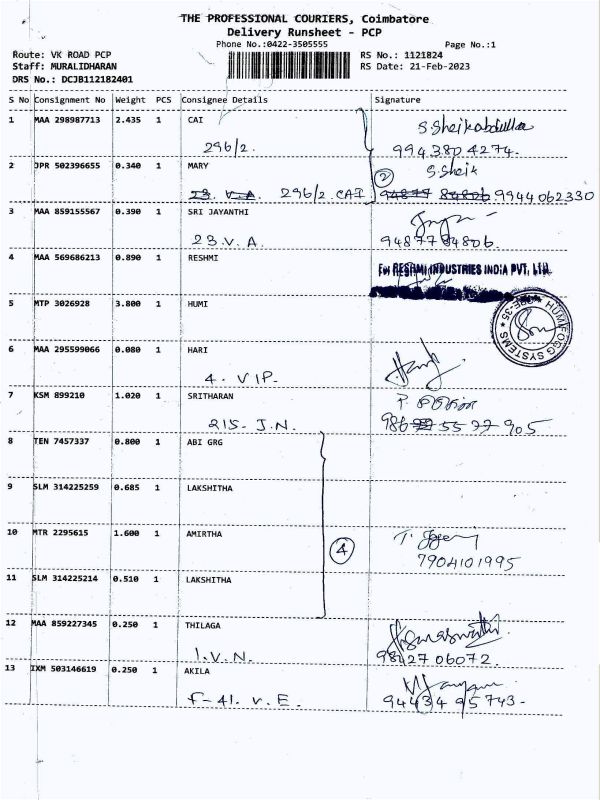 THE PROFESSIONAL COURIERS, Coimbatore
Delivery Runsheet - PCP
Phone No.:0422-3505555
Page No.:1
Route: VK ROAD PCP
RS No.: 1121824
Staff: MURALIDHARAN
RS Date: 21-Feb-2023
DRS No.: DCJB112182401
S No Consignment No Weight PCS Consignee Details Signature
1 MAA 298987713 2.435 1 CAI S.Sheikabdullaa
296/2. 9943804274.
2 JPR 502396655 0.340 1 MARY 2 S.Sheik
23. V.A. 296/2 CAI 94877 84806 9944062330
3 MAA 859155567 0.390 1 SRI JAYANTHI
23.V.A. 9487784806.
4 MAA 569686213 0.890 1 RESHMI For RESHMI INDUSTRIES INDIA PVT. LTD.
5 MTP 3026928 3.800 1 HUMI
6 MAA 295599066 0.080 1 HARI
4. VIP.
7 KSM 899210 1.020 1 SRITHARAN
215- J.N.
8 TEN 7457337 0.800 1 ABI GRG
9 SLM 314225259 0.685 1 LAKSHITHA
10 MTR 2295615 1.600 1 AMIRTHA
4 7904101995
11 SLM 314225214 0.510 1 LAKSHITHA
12 MAA 859227345 0.250 1 THILAGA
1.V.N. 98427 06072.
13 IXM 503146619 0.250 1 AKILA
F-41. V.E. 94434 95743-